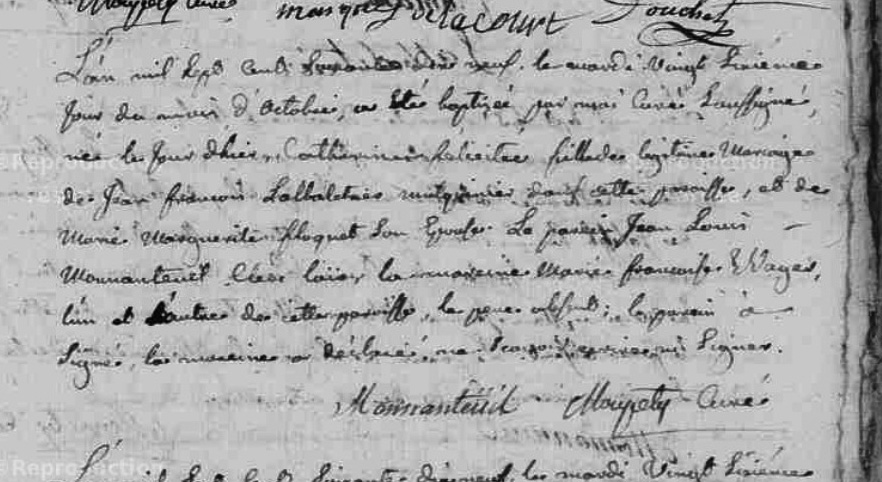 Mouppetit Curé masquet Delacourt Douchet
L'an mil Sept Cent Soixante dix neuf, le mardi Vingt Sixieme
Jour du mois d'octobre, a eté baptizée par moi Curé Soussigné,
née le Jour d'hier, Catherine felicitée fille de legitime Mariage
de Jean francois Lalbaletrier mulquinier dans cette paroisse, et de
Marie Marguerite floquet Son Epouse. Le parein Jean Louis
Monnanteuil Clerc laic, la mareine Marie francoise Wager,
l'un et l'autre de cette paroisse, le pere absent; le parein a
Signé, la mareine a déclaré ne Scavoir ecrire ni Signer.
Monnanteuil Curé
L'an mil Sept Cent Soixante dix neuf, le mardi Vingt Sixieme